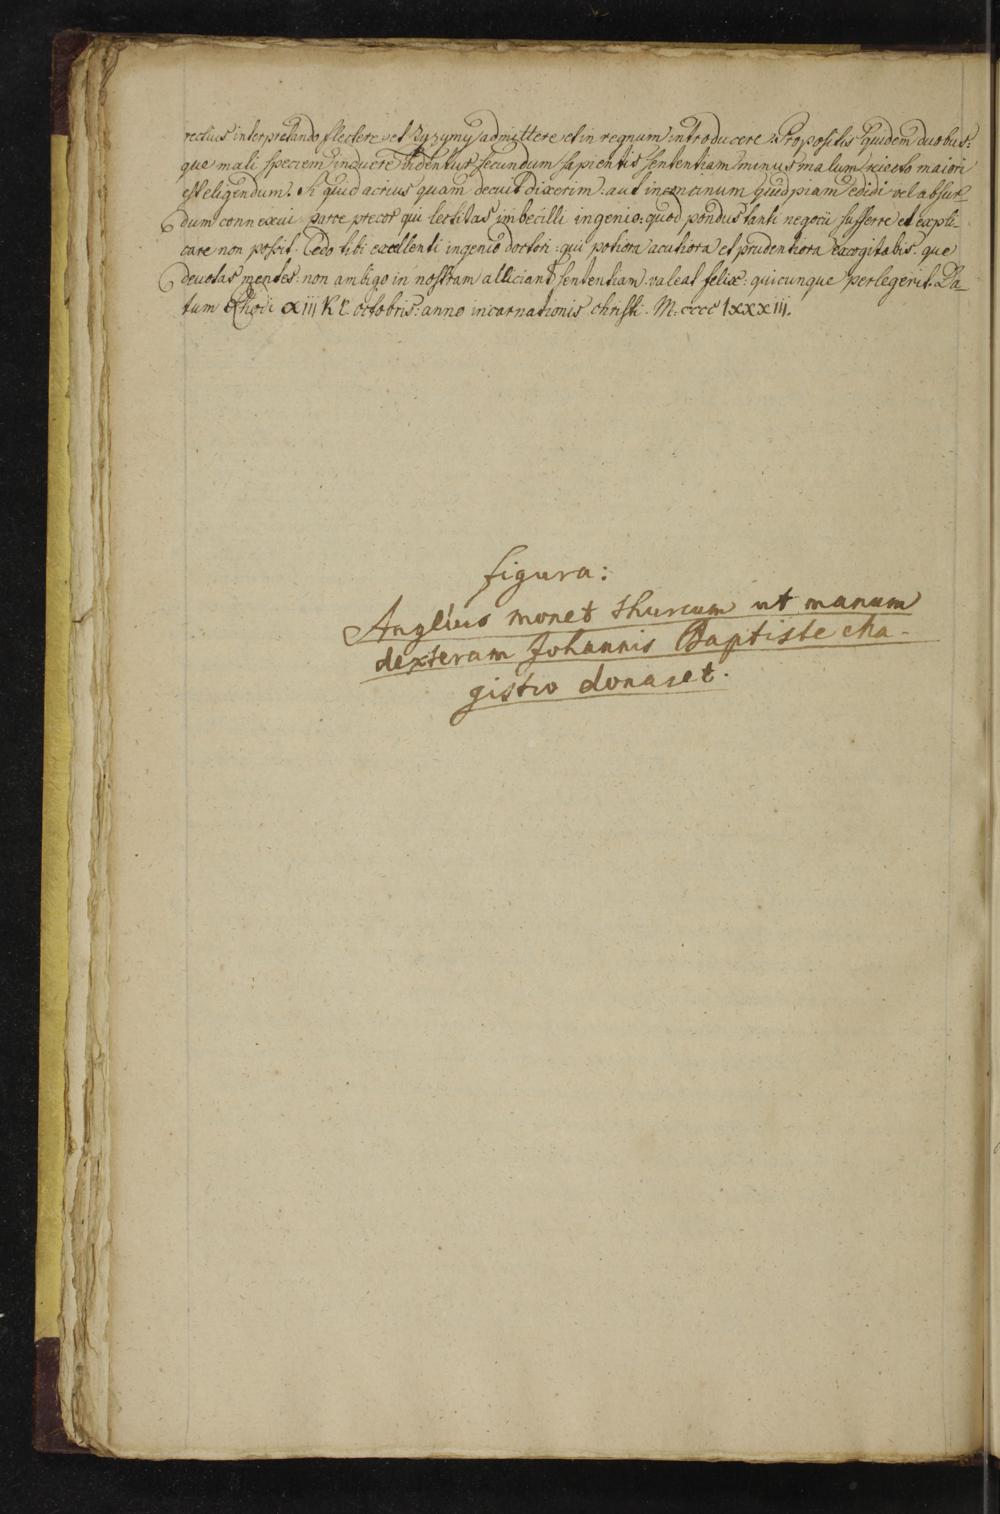 rectius interpretando flectere et Zyzymy admittere et in regnum introducere. Propositis quidem duobus:
que mali speciem inducere videntur secundum sapientis sententiam minus malum reiecto maiori
est eligendum. Si quid acrius quam decuit dixerim: aut inconcinnum quidpiam edidi vel absur-
dum connexui parce precor qui lectitas imbecilli ingenio: quod pondus tanti negocii sufferre et expli-
care non possit. Cedo tibi excellenti ingenio doctori: qui potiora acutiora et prudentiora excogitabis: que
devotas mentes: non ambigo in nostram alliciant sententiam. valeat felix: quicunque perlegerit. Da-
tum Rhodi xiij Kl. octobris: anno incarnationis christi. M. cccc lxxxiij.
figura:
Anglius monet thurcum ut manum
dexteram Johannis Baptiste cha-
gistro donaret.